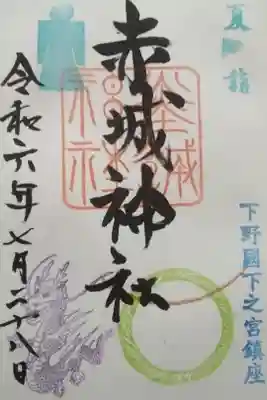 夏詣
下野國下之宮鎮座
赤城神社
令和六年七月二十八日